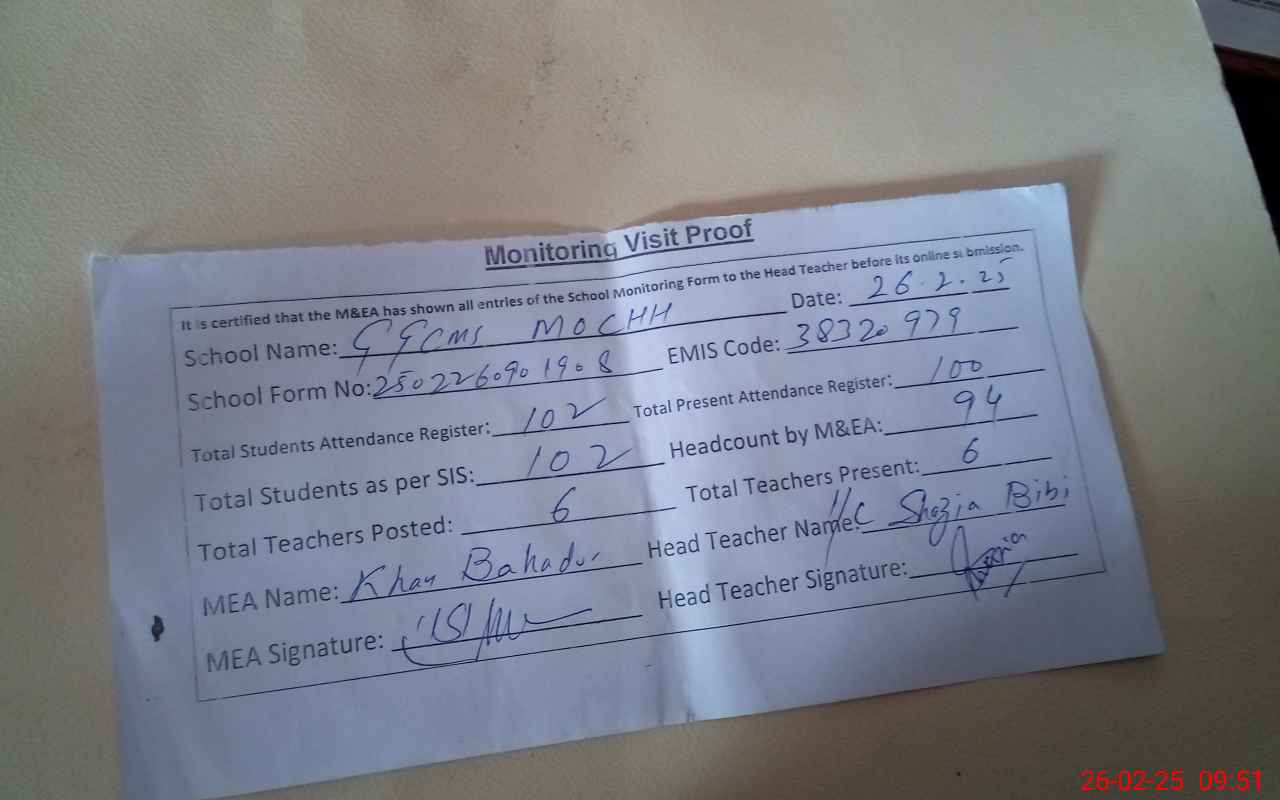 Monitoring Visit Proof
It is certified that the M&EA has shown all entries of the School Monitoring Form to the Head Teacher before its online submission.
School Name: GGCMS MOCHH Date: 26.2.25
School Form No: 2502260901908 EMIS Code: 38320979
Total Students Attendance Register: 102 Total Present Attendance Register: 100
Total Students as per SIS: 102 Headcount by M&EA: 94
Total Teachers Posted: 6 Total Teachers Present: 6
MEA Name: Khan Bahadur Head Teacher Name: I/C Shazia Bibi
MEA Signature: Head Teacher Signature:
26-02-25 09:51